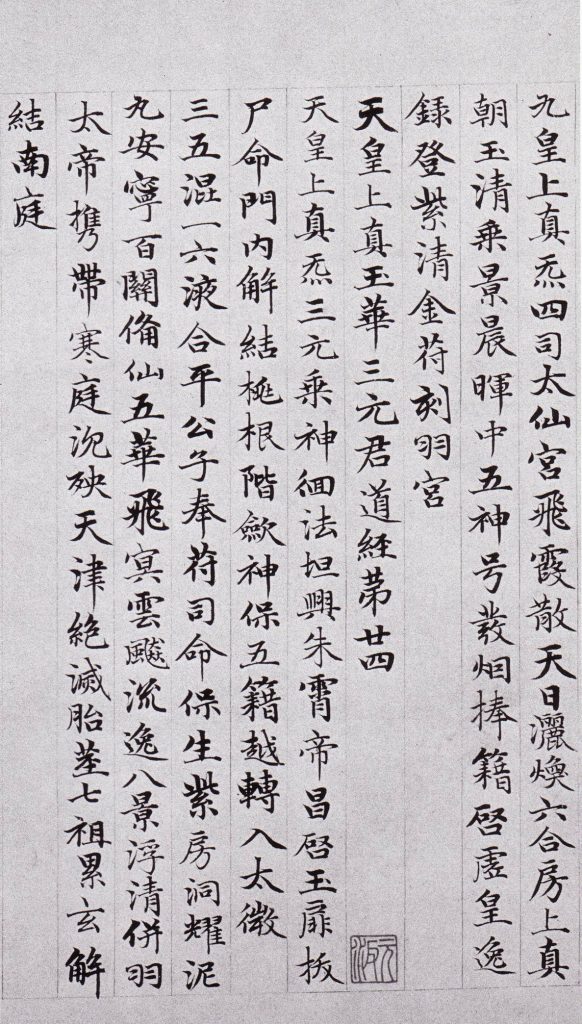 九皇上真炁四司太仙宮飛霞散天日灑煥六合房上真
朝玉清乘景晨暉中五神号發烟捧籍啓虛皇逸
錄登紫清金苻刻羽宮
天皇上真玉華三元君道經苐廿四
天皇上真炁三元乘神徊法坦興朱霄帝昌啓玉扉扳
尸命門內解結桃根階歛神保五籍越轉入太微
三五混一六液合平公子奉苻司命保生紫房洞耀泥
丸安寧百關俻仙五華飛冥雲飈流逸八景浮清併羽
太帝携帶寒庭沉殃天津絕滅胎莖七祖累玄解
結南庭